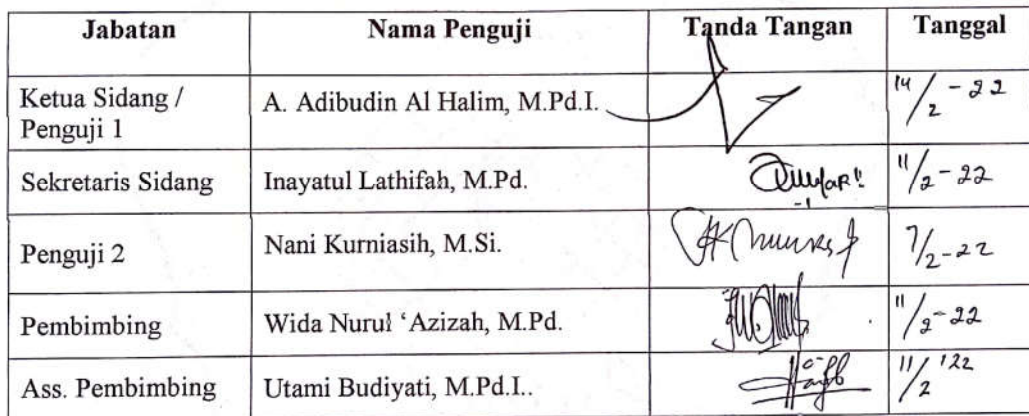 Jabatan Nama Penguji Tanda Tangan Tanggal
Ketua Sidang / A. Adibudin Al Halim, M.Pd.I. 14/2 - 22
Penguji 1
Sekretaris Sidang Inayatul Lathifah, M.Pd. 11/2 - 22
Penguji 2 Nani Kurniasih, M.Si. 7/2-22
Pembimbing Wida Nurul ‘Azizah, M.Pd. 11/2-22
Ass. Pembimbing Utami Budiyati, M.Pd.I.. 11/2 '22